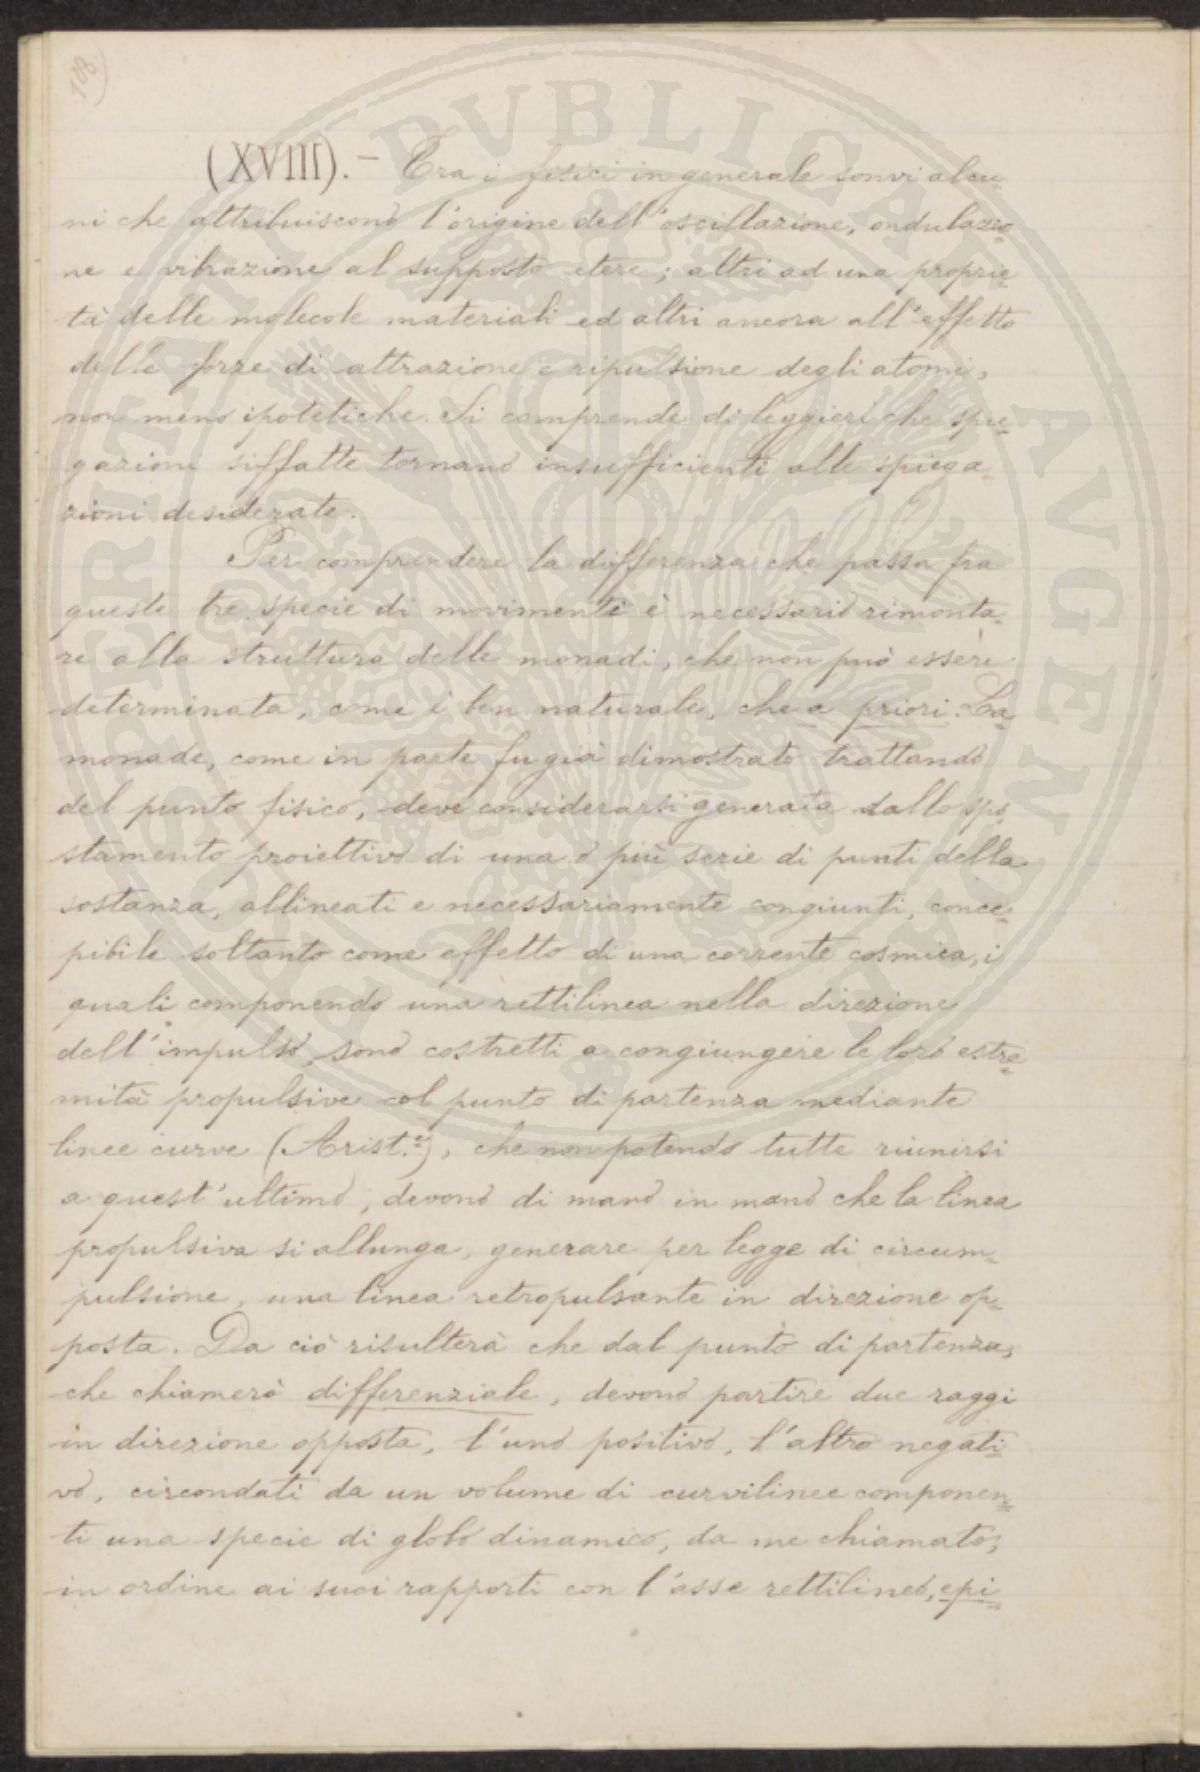 108
(XVIII). — Tra i fisici in generale sonvi alcu=
ni che attribuiscono l'origine dell'oscillazione, ondulazio=
ne e vibrazione al supposto etere; altri ad una proprie=
tà delle molecole materiali ed altri ancora all'effetto
delle forze di attrazione e ripulsione degli atomi,
non meno ipotetiche. Si comprende di leggieri che spie=
gazioni siffatte tornano insufficienti alle spiega=
zioni desiderate.
Per comprendere la differenza che passa fra
queste tre specie di movimenti è necessario rimonta=
re alla struttura delle monadi, che non può essere
determinata, come è ben naturale, che a priori. La
monade, come in parte fu già dimostrato trattando
del punto fisico, deve considerarsi generata dallo spo=
stamento proiettivo di una o più serie di punti della
sostanza, allineati e necessariamente congiunti, conce=
pibile soltanto come effetto di una corrente cosmica, i
quali componendo una rettilinea nella direzione
dell'impulso, sono costretti a congiungere le loro estre=
mità propulsive col punto di partenza mediante
linee curve (Arist.e), che non potendo tutte riunirsi
a quest'ultimo, devono di mano in mano che la linea
propulsiva si allunga, generare per legge di circum=
pulsione, una linea retropulsante in direzione op=
posta. Da ciò risulterà che dal punto di partenza,
che chiamerò differenziale, devono partire due raggi
in direzione opposta, l'uno positivo, l'altro negati=
vo, circondati da un volume di curvilinee componen=
ti una specie di globo dinamico, da me chiamato,
in ordine ai suoi rapporti con l'asse rettilineo, epi=